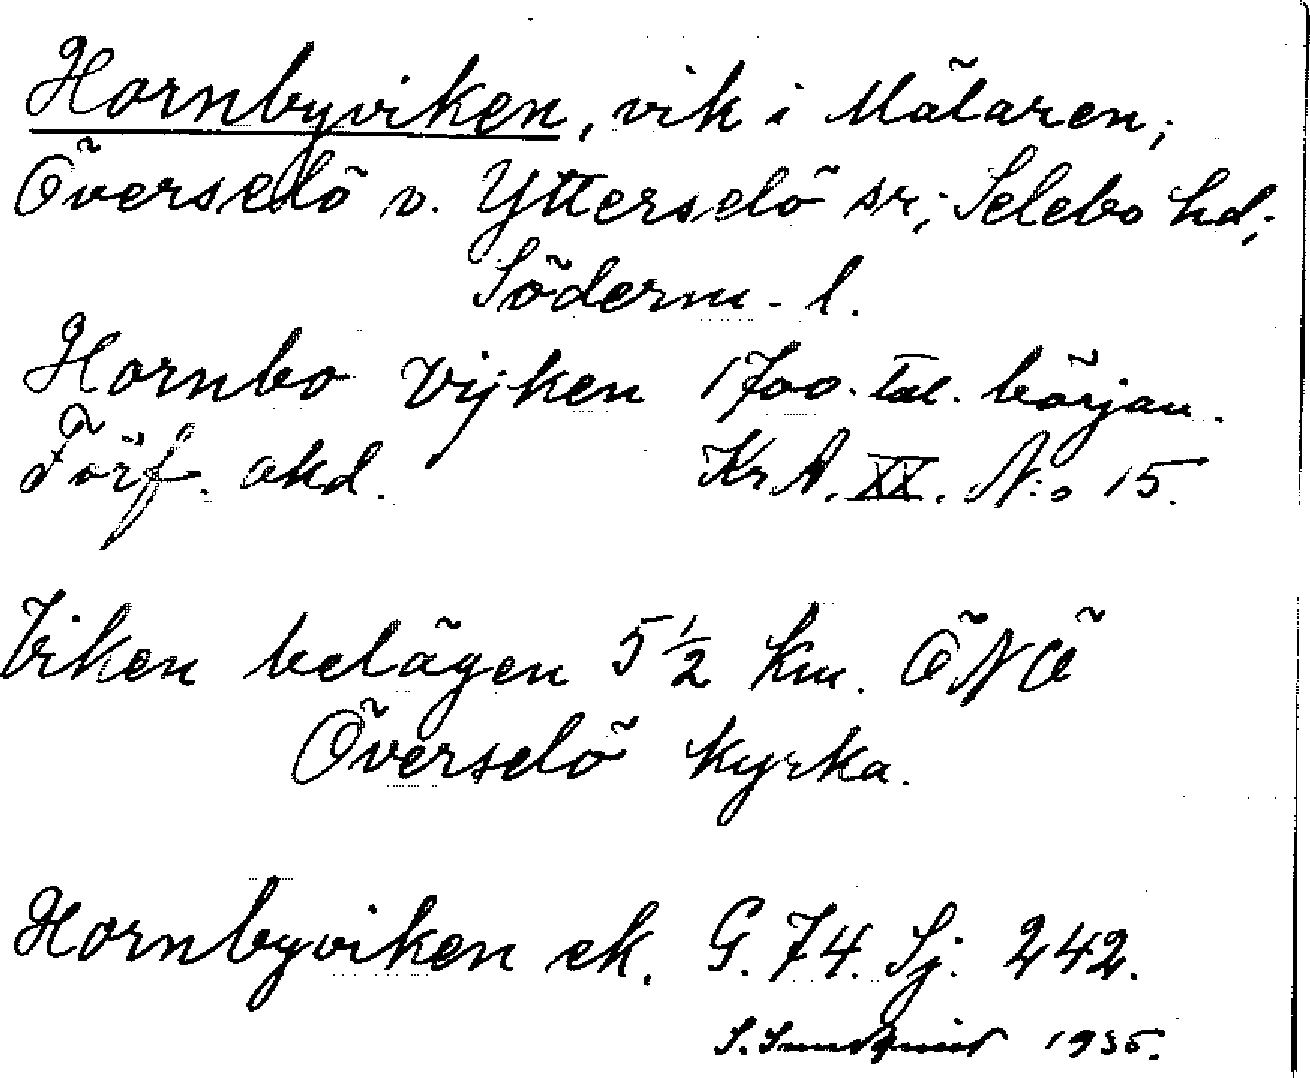 Hornbyviken, vik i Mälaren;
Överselö o. Ytterselö sr; Selebo hd;
Söderm. l.
Hornbo Vijken 1700-tal. början.
Förf. okd. KrA. XX. N:o 15.
Viken belägen 5 1/2 km. ÖNÖ
Överselö kyrka.
Hornbyviken ek. G. 74. Sj. 242.
S. 1935.